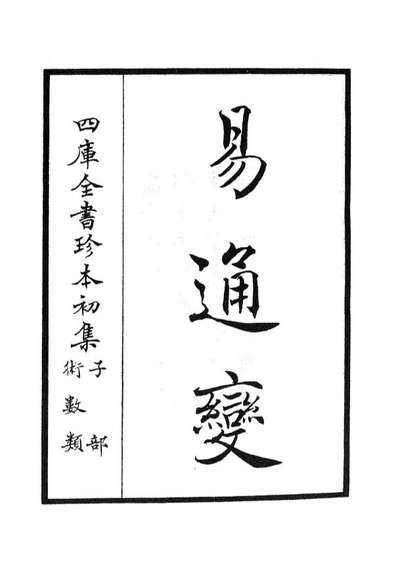 易通變
四庫全書珍本初集
子部
術數類